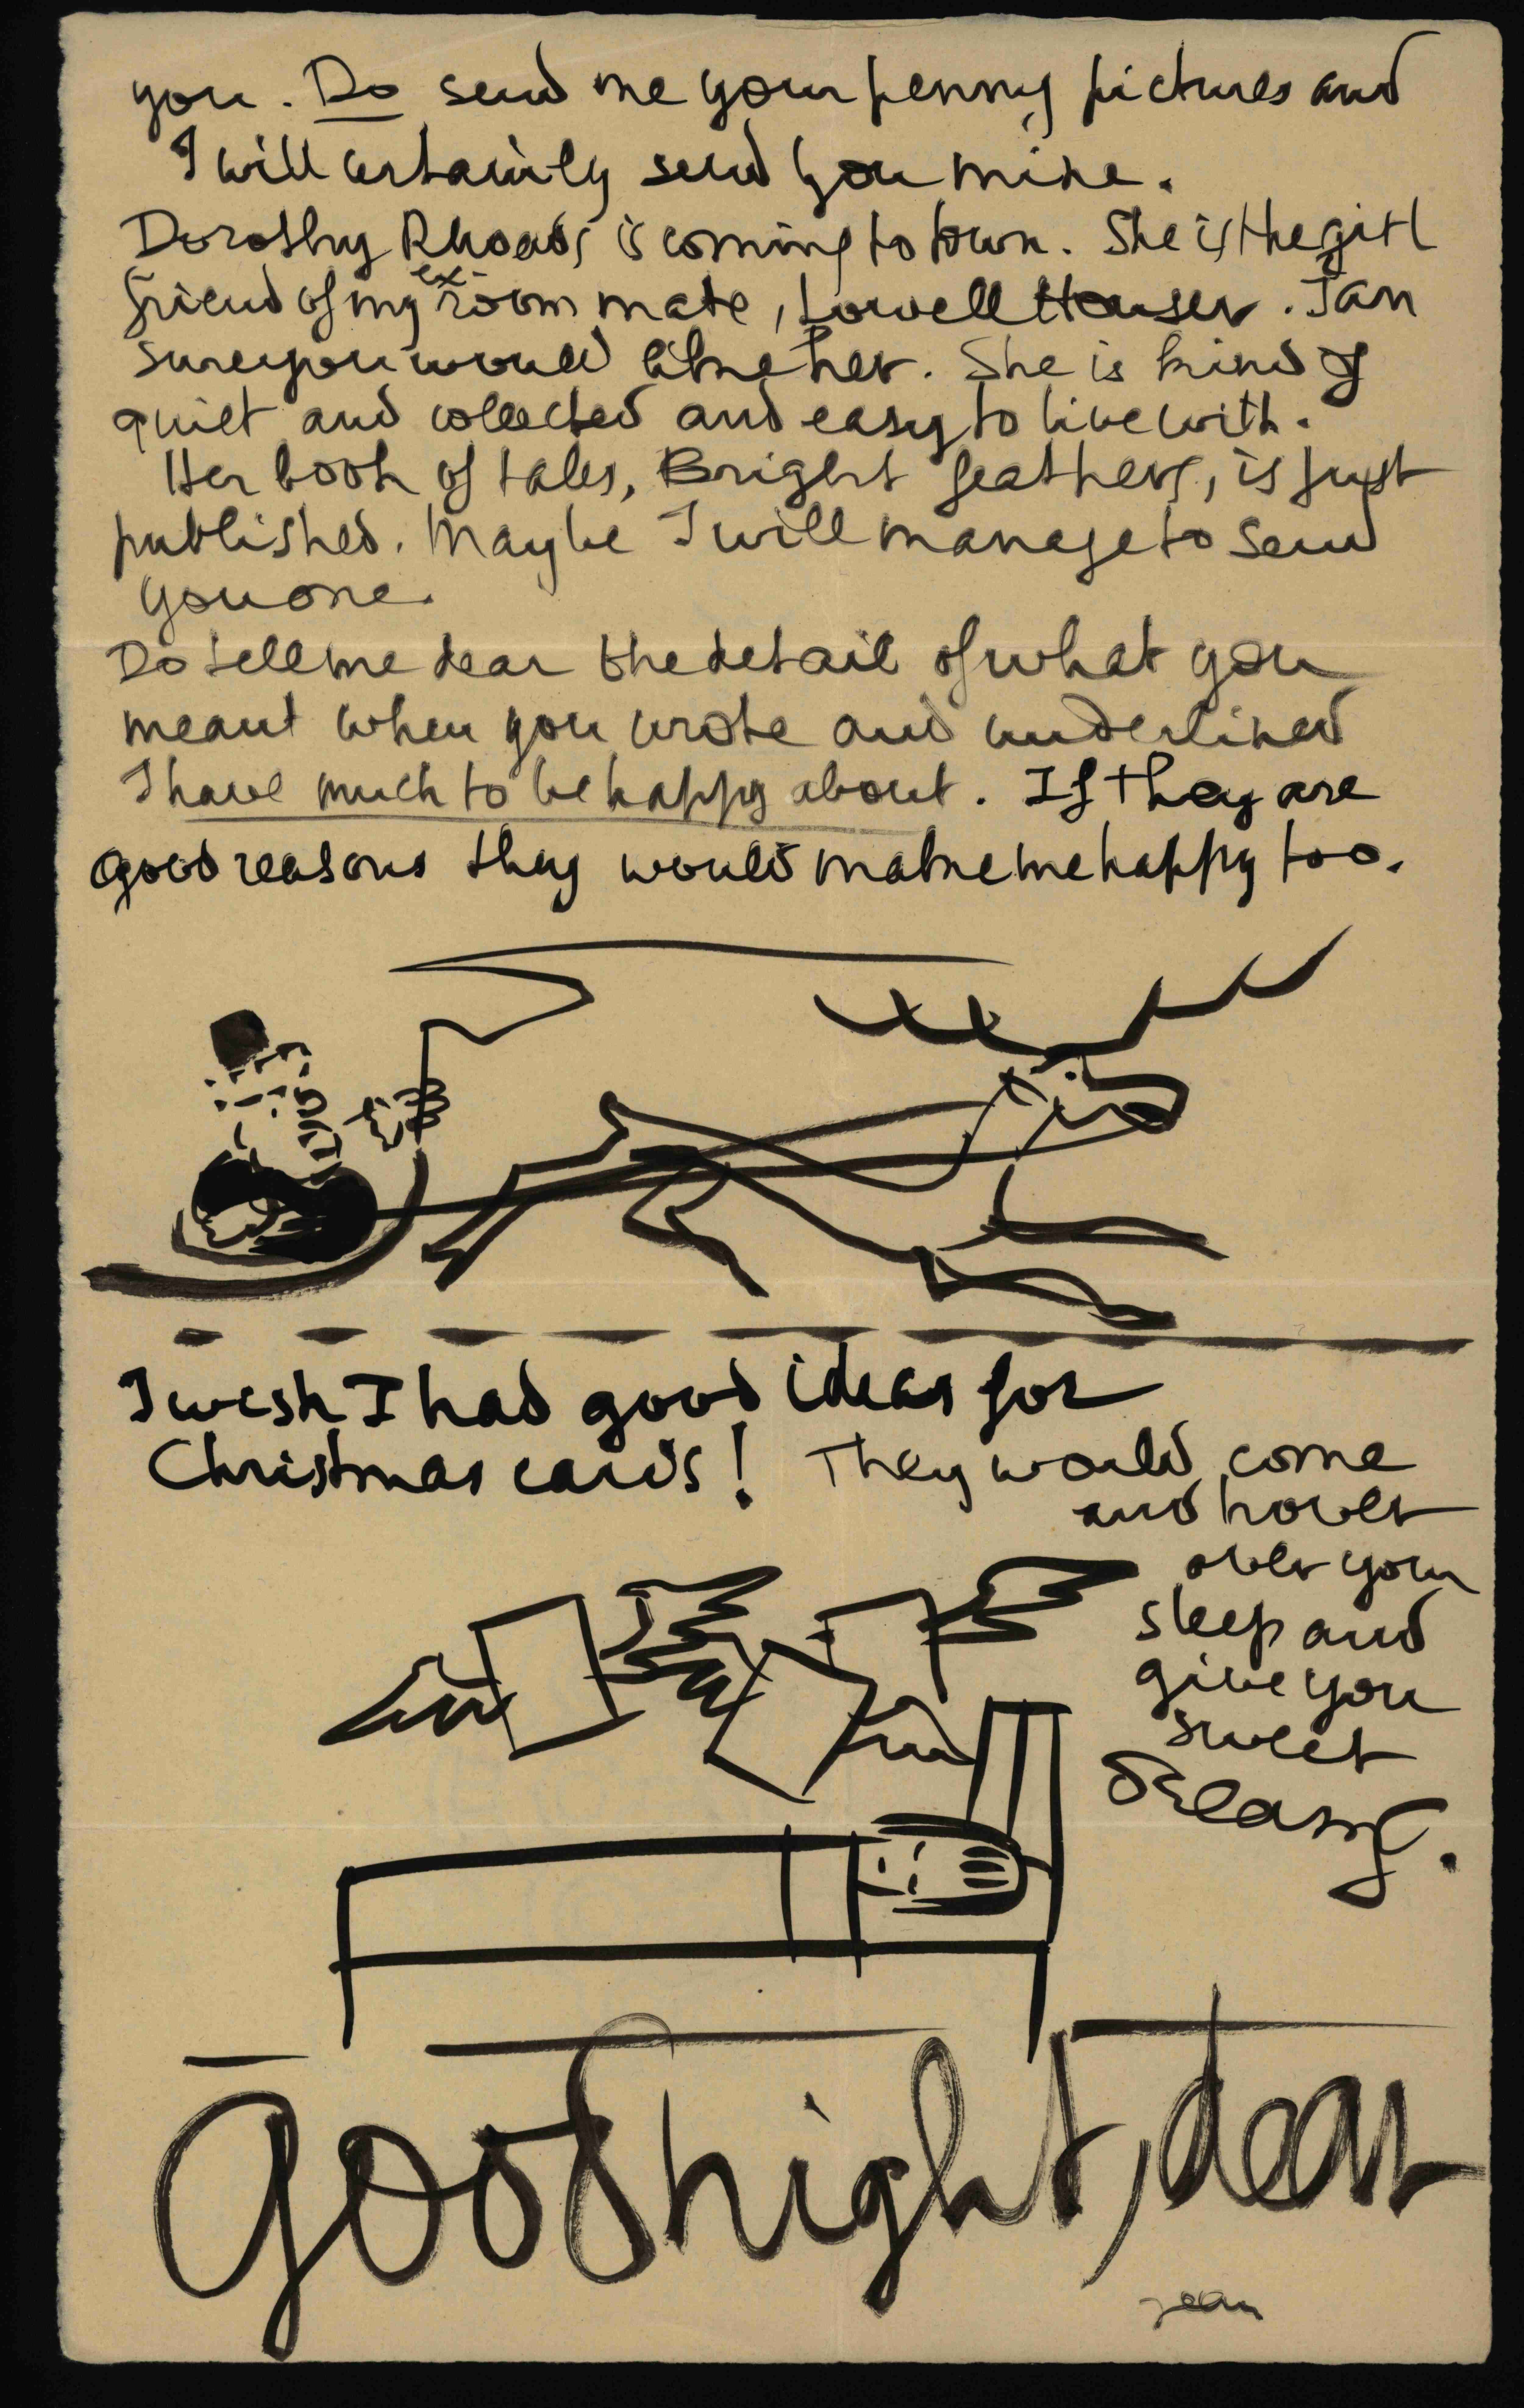 you. Do send me your penny pictures and
I will certainly send you mine.
Dorothy Rhoads is coming to town. She is the girl
friend of my ex-room mate, Lowell Houser. I am
sure you would like her. She is kind of
quiet and collected and easy to live with.
Her book of tales, Bright feathers, is just
published. Maybe I will manage to send
you one.
Do tell me dear the detail of what you
meant when you wrote and underlined
I have much to be happy about. If they are
good reasons they would make me happy too.
I wish I had good ideas for
Christmas cards! They would come
and hover
over your
sleep and
give you
sweet
dreams.
Good night, dear
Jean